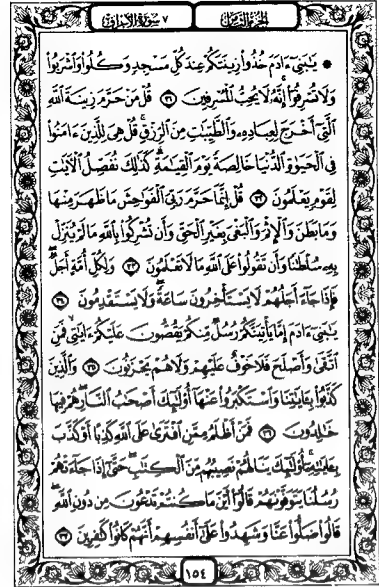 الجزء الثامن ٧ سورة الأعراف
۞ يَـٰبَنِىٓ ءَادَمَ خُذُوا۟ زِينَتَكُمْ عِندَ كُلِّ مَسْجِدٍ وَكُلُوا۟ وَٱشْرَبُوا۟
وَلَا تُسْرِفُوٓا۟ إِنَّهُۥ لَا يُحِبُّ ٱلْمُسْرِفِينَ ٣١ قُلْ مَنْ حَرَّمَ زِينَةَ ٱللَّهِ
ٱلَّتِىٓ أَخْرَجَ لِعِبَادِهِۦ وَٱلطَّيِّبَـٰتِ مِنَ ٱلرِّزْقِ ۚ قُلْ هِىَ لِلَّذِينَ ءَامَنُوا۟
فِى ٱلْحَيَوٰةِ ٱلدُّنْيَا خَالِصَةً يَوْمَ ٱلْقِيَـٰمَةِ ۗ كَذَٰلِكَ نُفَصِّلُ ٱلْـَٔايَـٰتِ
لِقَوْمٍ يَعْلَمُونَ ٣٢ قُلْ إِنَّمَا حَرَّمَ رَبِّىَ ٱلْفَوَٰحِشَ مَا ظَهَرَ مِنْهَا
وَمَا بَطَنَ وَٱلْإِثْمَ وَٱلْبَغْىَ بِغَيْرِ ٱلْحَقِّ وَأَن تُشْرِكُوا۟ بِٱللَّهِ مَا لَمْ يُنَزِّلْ
بِهِۦ سُلْطَـٰنًا وَأَن تَقُولُوا۟ عَلَى ٱللَّهِ مَا لَا تَعْلَمُونَ ٣٣ وَلِكُلِّ أُمَّةٍ أَجَلٌ ۖ
فَإِذَا جَآءَ أَجَلُهُمْ لَا يَسْتَأْخِرُونَ سَاعَةً ۖ وَلَا يَسْتَقْدِمُونَ ٣٤
يَـٰبَنِىٓ ءَادَمَ إِمَّا يَأْتِيَنَّكُمْ رُسُلٌ مِّنكُمْ يَقُصُّونَ عَلَيْكُمْ ءَايَـٰتِى ۙ فَمَنِ
ٱتَّقَىٰ وَأَصْلَحَ فَلَا خَوْفٌ عَلَيْهِمْ وَلَا هُمْ يَحْزَنُونَ ٣٥ وَٱلَّذِينَ
كَذَّبُوا۟ بِـَٔايَـٰتِنَا وَٱسْتَكْبَرُوا۟ عَنْهَآ أُو۟لَـٰٓئِكَ أَصْحَـٰبُ ٱلنَّارِ ۖ هُمْ فِيهَا
خَـٰلِدُونَ ٣٦ فَمَنْ أَظْلَمُ مِمَّنِ ٱفْتَرَىٰ عَلَى ٱللَّهِ كَذِبًا أَوْ كَذَّبَ
بِـَٔايَـٰتِهِۦٓ ۚ أُو۟لَـٰٓئِكَ يَنَالُهُمْ نَصِيبُهُم مِّنَ ٱلْكِتَـٰبِ ۖ حَتَّىٰٓ إِذَا جَآءَتْهُمْ
رُسُلُنَا يَتَوَفَّوْنَهُمْ قَالُوٓا۟ أَيْنَ مَا كُنتُمْ تَدْعُونَ مِن دُونِ ٱللَّهِ ۖ
قَالُوا۟ ضَلُّوا۟ عَنَّا وَشَهِدُوا۟ عَلَىٰٓ أَنفُسِهِمْ أَنَّهُمْ كَانُوا۟ كَـٰفِرِينَ ٣٧
١٥٤